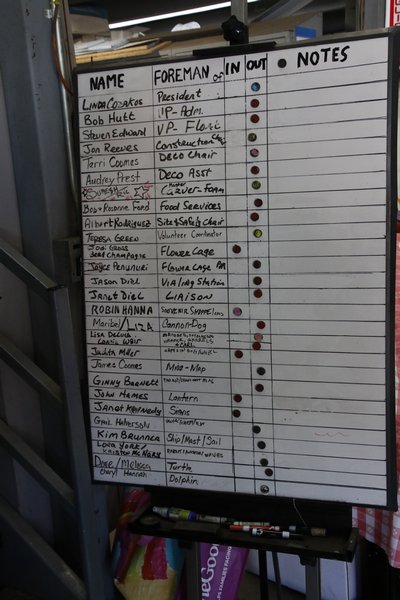 NAME FOREMAN of IN OUT NOTES
LINDA COZAKOS President
Bob Hutt VP-Adm.
Steven Edward VP-Float
Jon Reeves Construction Chr
Terri Coomes DECO Chair
Audrey Prest DECO Asst
Carver-Foam
Bob & Rosanne Ford Food Services
Albert Rodriguez Site & Safety Chair
TERESA GREEN Volunteer Coordinator
Jodi Gross
Flower Cage
Joyce Penunuri Flower Cage AM
Jason Diel Vialing Station
Janet Diel LIAISON
ROBIN HANNA SOUVENIR SHOPPE
Maribel/LIZA Cannon-Dog
LISA
Judith Miller
James Coomes Map
GINNY Barnett
John Hames Lantern
Janet Kennedy Signs
Gail
Kim Brunner Ship/Mast/Sail
LORA YORK/
WAVES
Dave/Melissa Turtle
Cheryl Hannah Dolphin
Goo